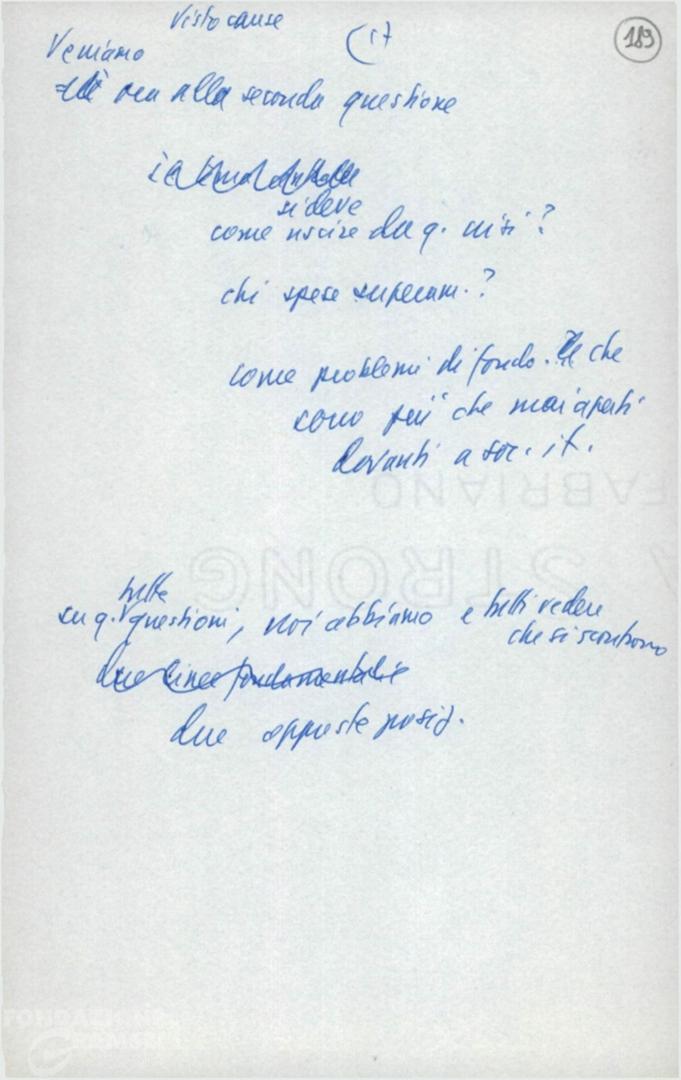 Visto cause
(17
189
Veniamo
ora alla seconda questione
si deve
come uscire da q. crisi?
chi spese superam.?
come problemi di fondo. che
sono più che mai aperti
davanti a soc. it.
FABRIANO
STRONG
tutte
su q. questioni, noi abbiamo e tutti vedere
che si scontrano
due linee fondamentali
due opposte posiz.
FONDAZIONE
GRAMSCI